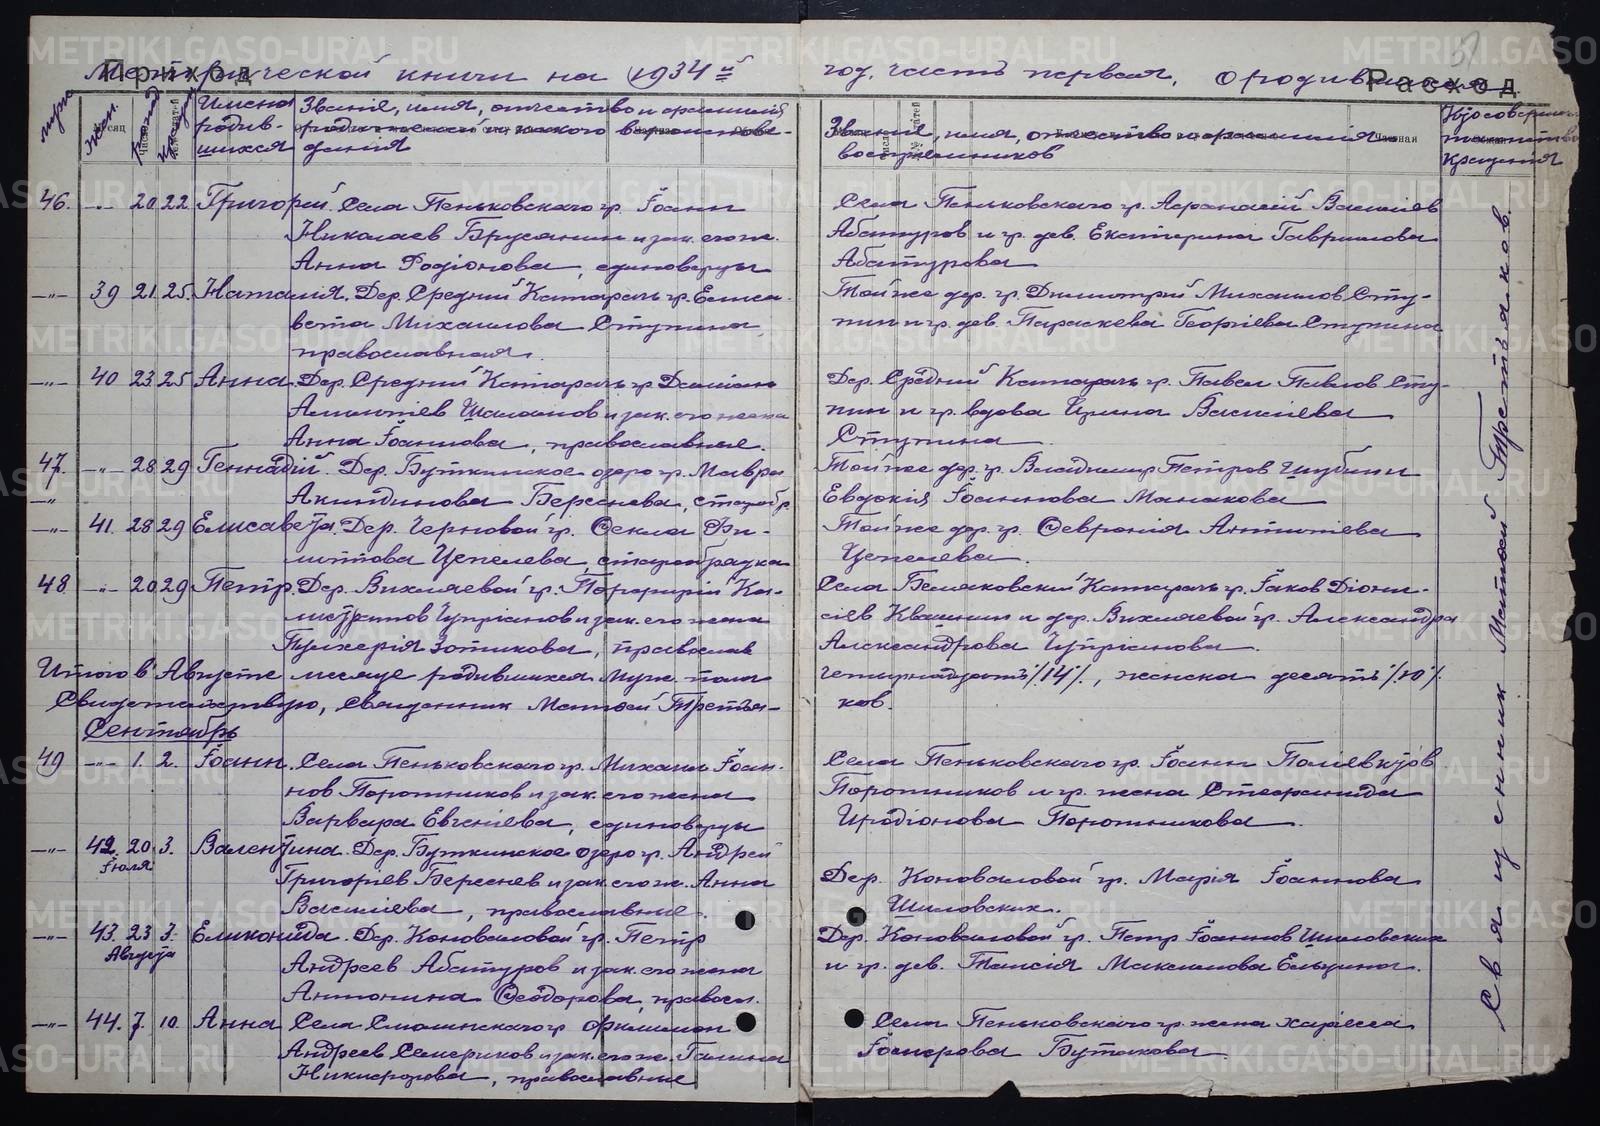 Приход
Метрической книги на 1934 й
год, часть первая, о родившихся
Расход
муж. жен.
Имена родив-шихся
Званіе, имя, отчество и фамилія родителей и какого вероисповедания
Званіе, имя, отчество и фамилія восприемников
Кто совершал таинство крещения
46. -"- 20 22 Григорій. Села Пеньковскаго гр. Іоанн
Николаев Брусянин и зак. его ж.
Анна Родіонова, единоверцы
Села Пеньковскаго гр. Афанасій Василіев
Абатуров и гр. дев. Екатерина Гаврилова
Абатурова
-"- 39 21 25 Наталія. Дер. Средний Катарач гр. Елиса-
вета Михаилова Ступина
православная.
Той же дер. гр. Димитрий Михаилов Сту-
пин и гр. дев. Параскева Георгіева Ступина
-"- 40 23 25 Анна. Дер. Средний Катарачь гр. Дамиан
Шалонов и зак. его жена
Анна Іоаннова, православные.
Дер. Средний Катарачь гр. Павел Павлов Сту-
пин и гр. вдова Ирина Василіева
Ступина
47. -"- 28 29 Геннадій. Дер. Буткинское озеро гр. Мавра
-"- Акиндинова Береснева, старобр.
Той же дер. гр. Владимир Петров Шубин
Евдокія Іоаннова Манакова
-"- 41. 28 29 Елисавета. Дер. Черновой гр. Фекла Фи-
липпова Цепелева, старообрядка
Той же дер. гр. Феврония Антипіева
Цепелева
48. -"- 20 29 Петр. Дер. Вихляевой гр. Порфирій Ка-
листратов Чупріянов и зак. его жена
Пулхерія Зотикова, православ
Села Беляковский Катарачь гр. Іаков Діони-
сіев Квашнин и дер. Вихляевой гр. Александра
Александрова Чупріанова
Итого в Августе месяце родившихся муж. пола
четырнадцать /14/, женска десять /10/
Свидетельствую, Священник Матвей Третья-
ков.
Сентябрь
49 -"- 1. 2. Іоанн. Села Пеньковскаго гр. Михаил Іоан-
нов Поротников и зак. его жена
Варвара Евгеніева, единоверцы
Села Пеньковскаго гр. Іоанн Поліевктов
Поротников и гр. жена Стефанида
Иродіонова Поротникова
-"- 42. 20 3. Валентина. Дер. Буткинское озеро гр. Андрей
Іюля
Григоріев Береснев и зак. его ж. Анна
Василіева, православные.
Дер. Коноваловой гр. Марія Іоаннова
Шиловских.
-"- 43. 23 3. Еликонида. Дер. Коноваловой гр. Петр
Августа
Андреев Абатуров и зак. его жена
Антонина Феодорова, правосл.
Дер. Коноваловой гр. Петр Іоаннов Шиловских
и гр. дев. Таисія Максимова Ельцина.
-"- 44. 7. 10. Анна Села Смолинскаго гр. Филимон
Андреев Семериков и зак. его ж. Галина
Никифорова, православные
Села Пеньковскаго гр. жена Хариесса
Бутакова
Священник Матвей Третьяков.
METRIKI.GASO-URAL.RU